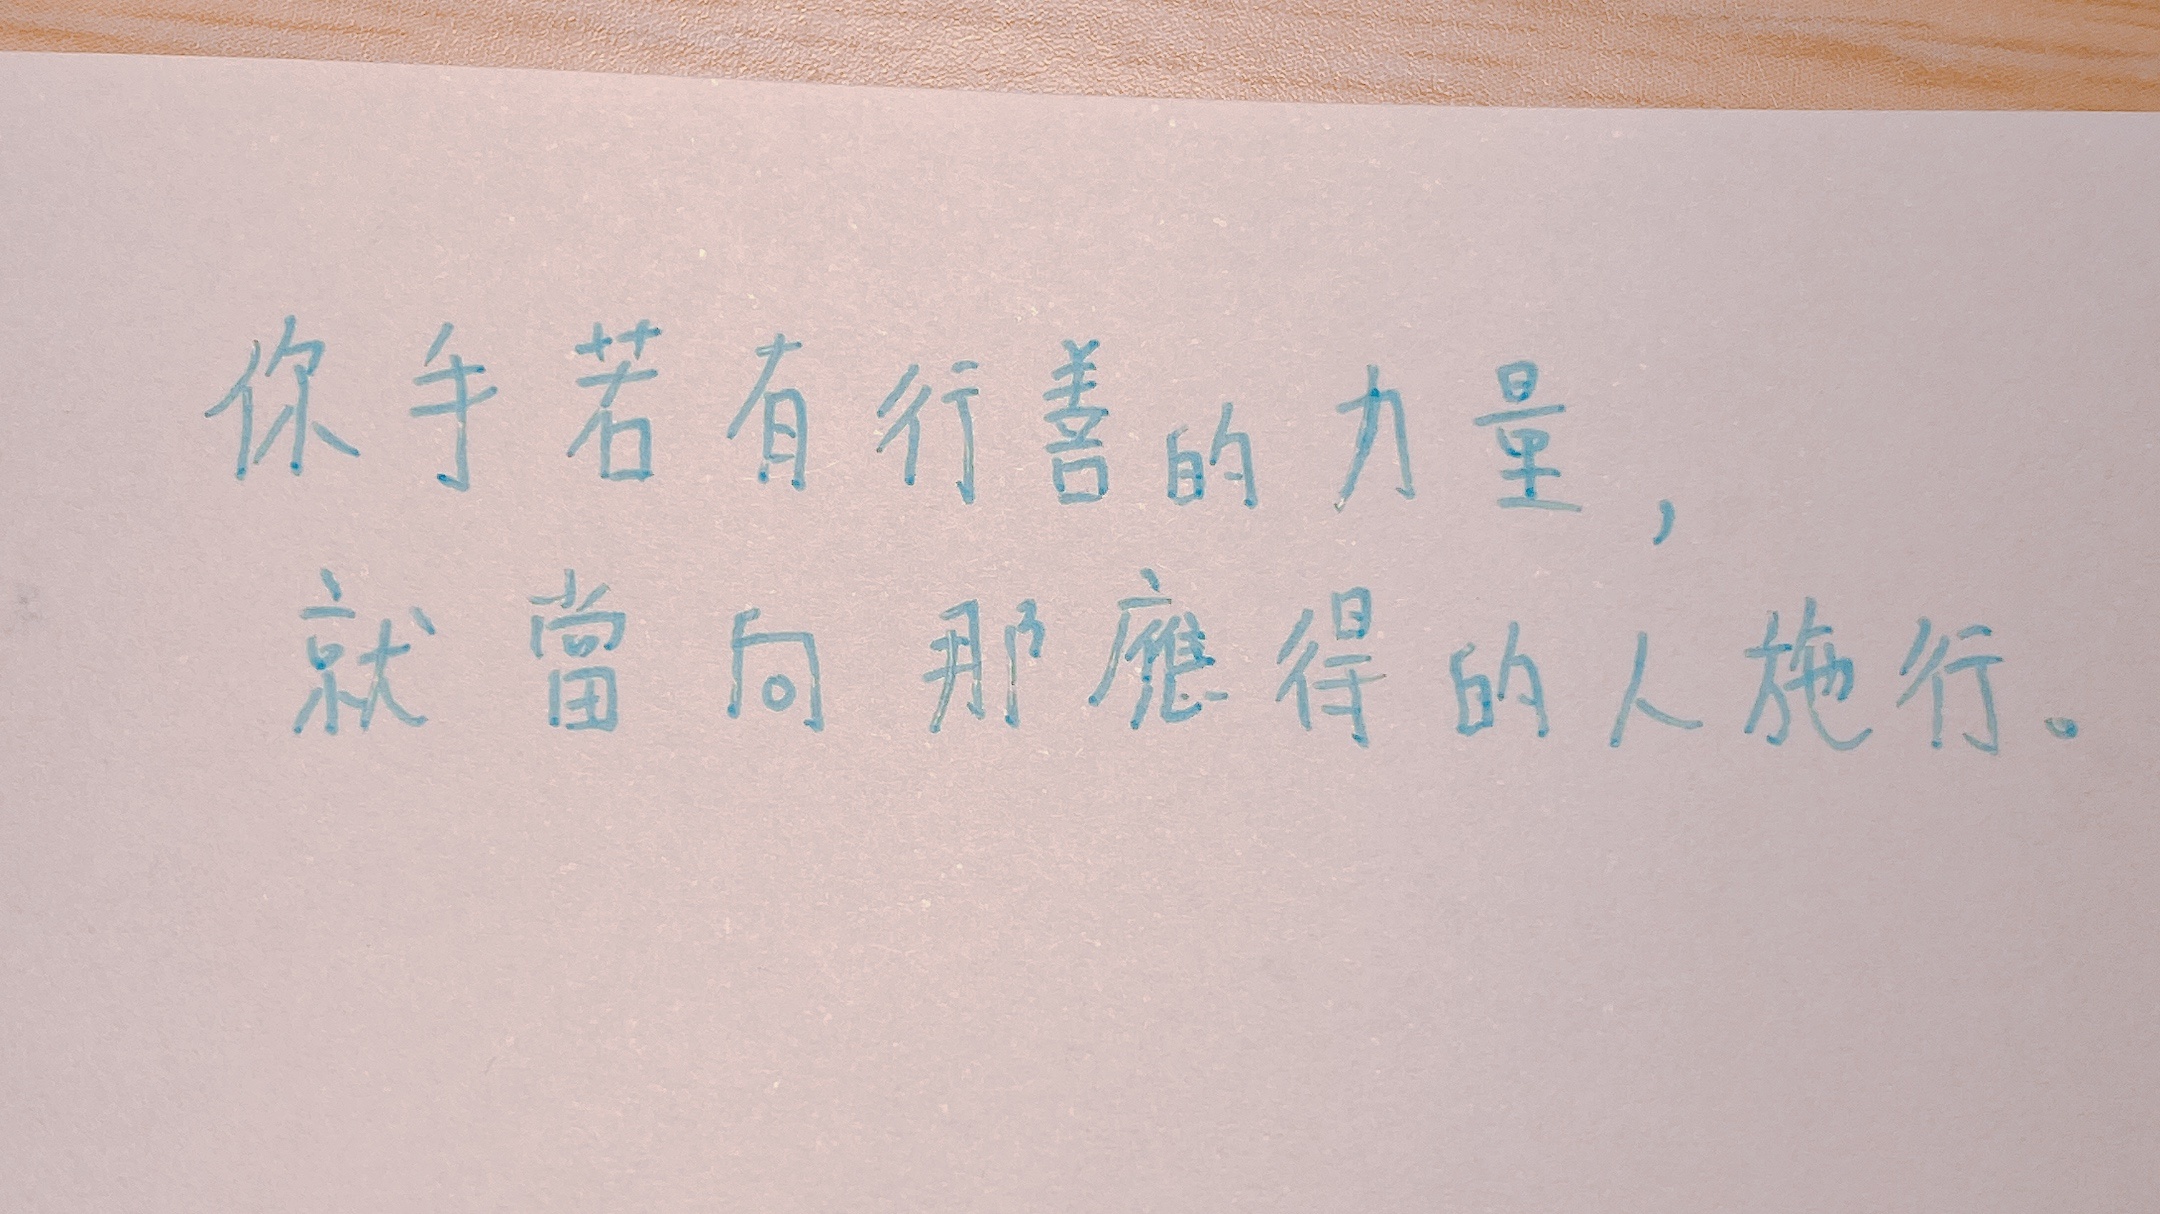 你手若有行善的力量,
就當向那應得的人施行。